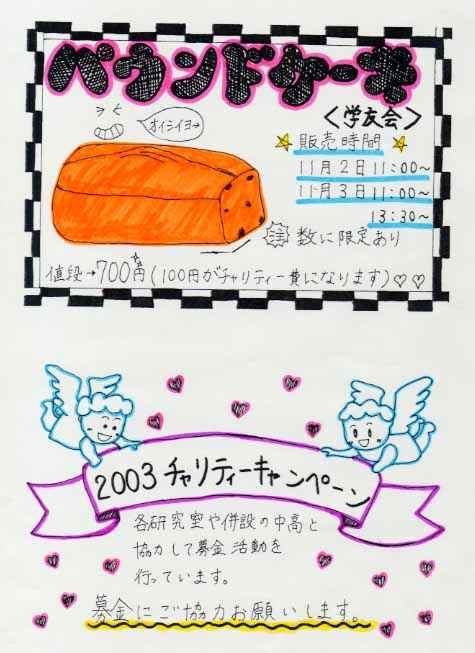 パウンドケーキ
<学友会>
オイシイヨー
販売時間
11月2日 11:00~
11月3日 11:00~
13:30~
注 数に限定あり
値段→700円(100円がチャリティー費になります)♡♡
2003 チャリティーキャンペーン
各研究室や併設の中高と
協力して募金活動を
行っています。
募金にご協力お願いします。